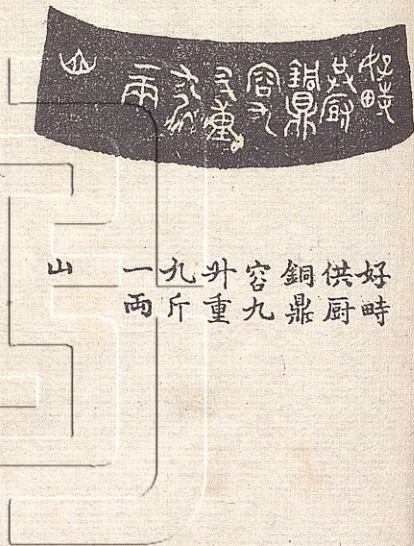 好畤
共厨
銅鼎
容九
升重
九斤
一兩
山
好畤
供厨
銅鼎
容九
升重
九斤
一兩
山